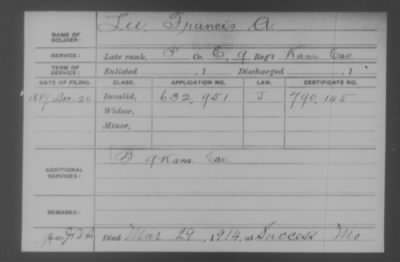 NAME OF SOLDIER: Lee, Francis A.
SERVICE: Late rank, P Co. E, 9 Reg't Kans Cav.
TERM OF SERVICE: Enlisted , 1 Discharged , 1
DATE OF FILING. CLASS. APPLICATION NO. LAW. CERTIFICATE NO.
1887 Dec. 20 Invalid, 632,951 J 790,145
Widow,
Minor,
ADDITIONAL SERVICES: B 9 Kans. Cav.
REMARKS:
Died Mar 29, 1914, at Success Mo